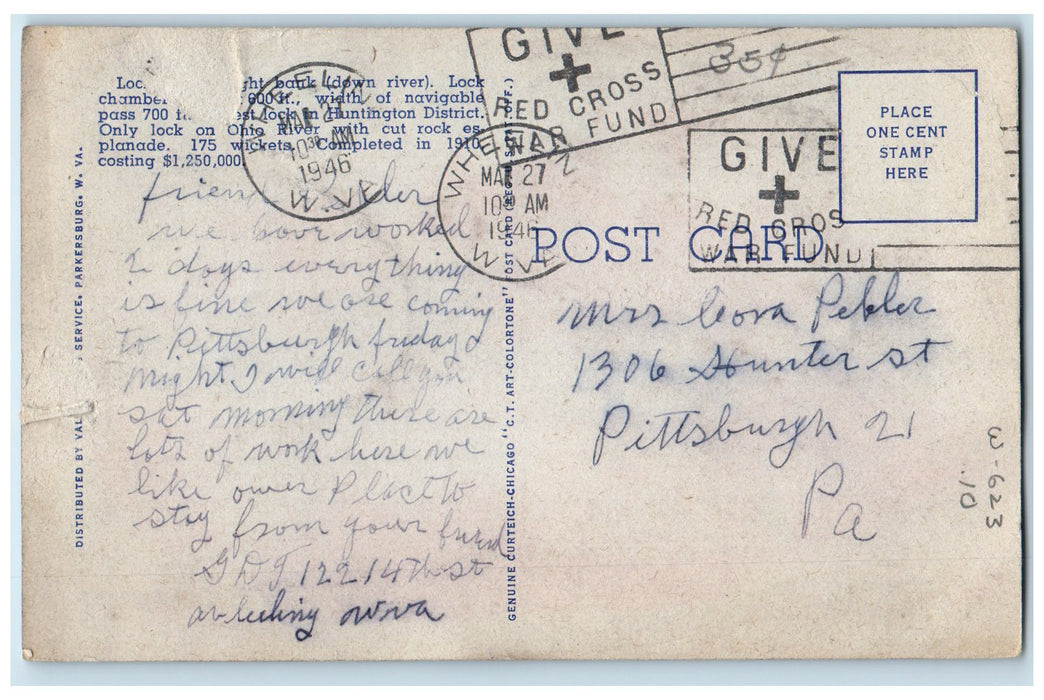 Loc ght bank (down river). Lock
chamber 600 ft., width of navigable
pass 700 f est lock in Huntington District.
Only lock on Ohio River with cut rock es-
planade. 175 wickets. Completed in 1910,
costing $1,250,000.
WHEELIN
MAR 27
10 30 AM
1946
W. VA.
GIVE
RED CROSS
WAR FUND
35¢
WHEELIN
MAR 27
10 30 AM
1946
W. VA.
GIVE
RED CROS
WAR FUND!
PLACE
ONE CENT
STAMP
HERE
POST CARD
friend
we have worked
2 days everything
is fine we are coming
to Pittsburgh friday
night I will call you
sat morning there are
lots of work here we
like ower Place to
stay from your friend
GDT 122 14th st
wva
Mrs Cora Pebler
1306 Hunter st
Pittsburgh 21
Pa
W-623
10
DISTRIBUTED BY VAL SERVICE, PARKERSBURG, W. VA.
GENUINE CURTEICH-CHICAGO "C.T. ART-COLORTONE" POST CARD (REG. U.S. PAT. OFF.)